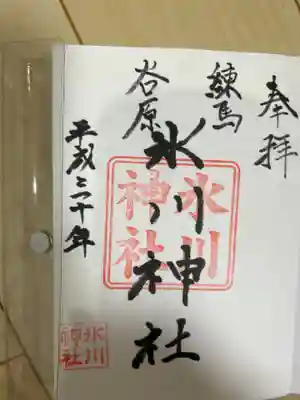 奉拝
練馬
谷原
氷川神社
平成三十年
氷川神社
氷川神社